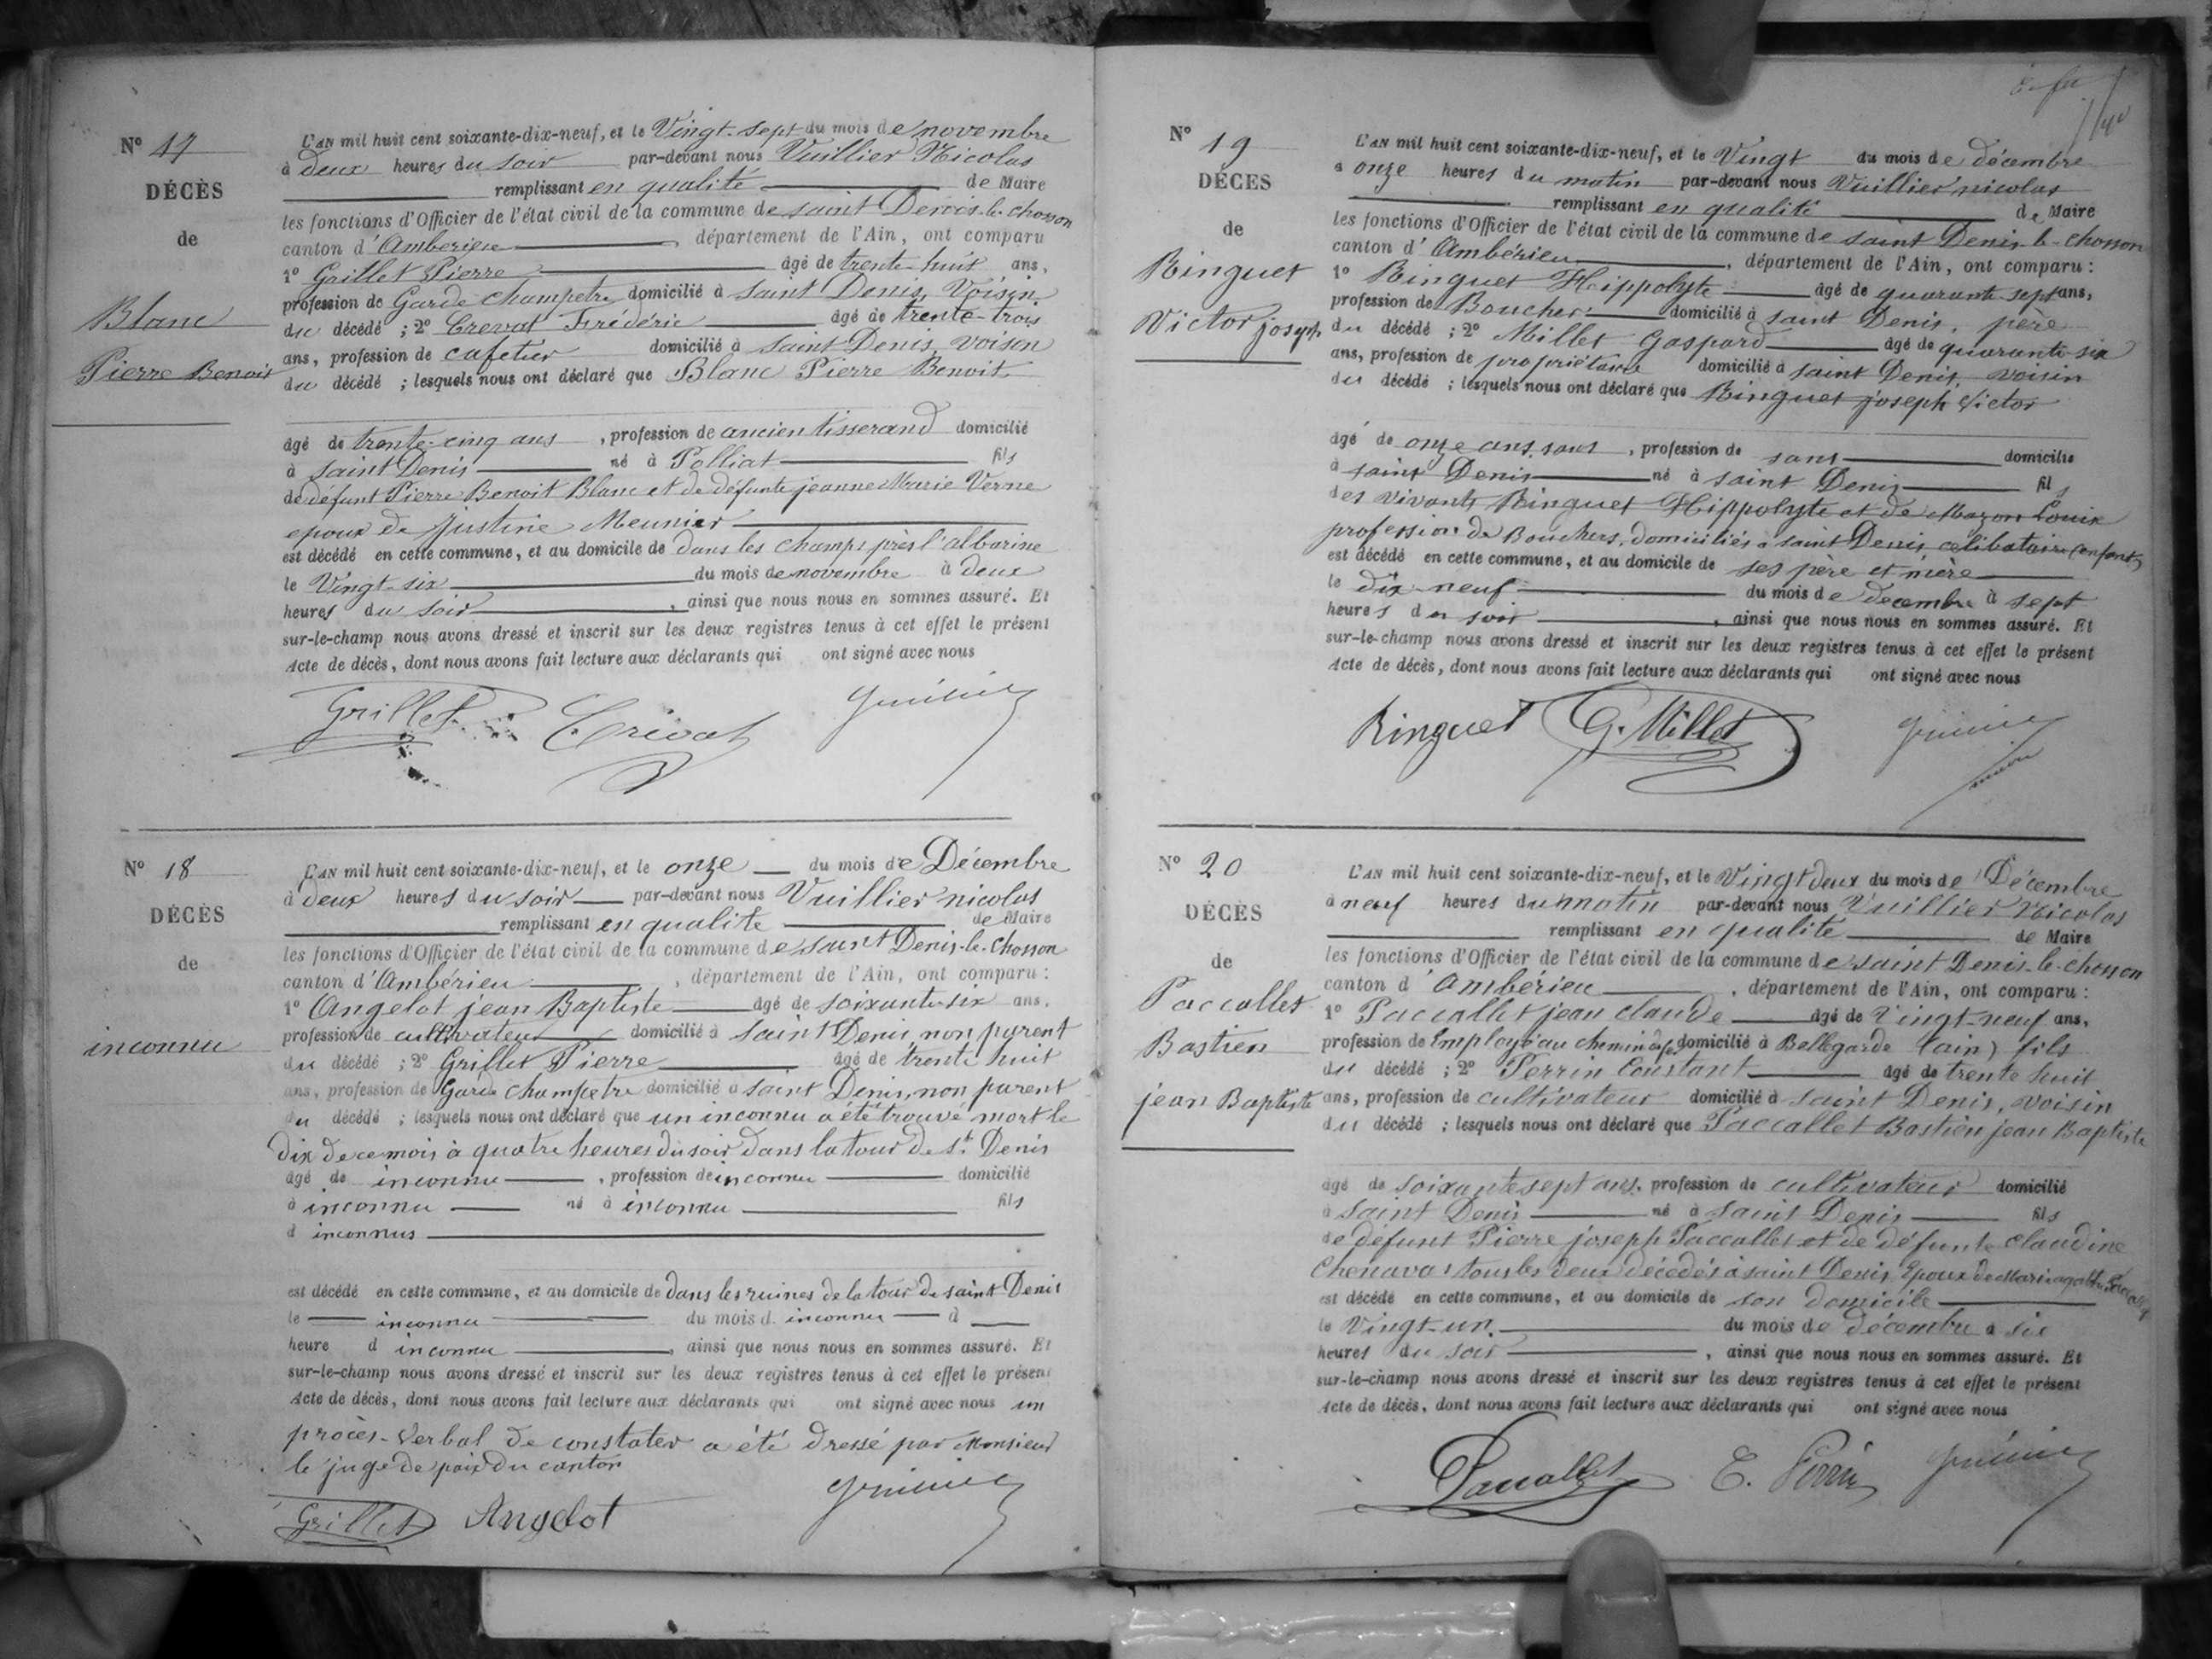 N° 17
DÉCÈS
de
Blanc
Pierre Benoit
L'AN mil huit cent soixante-dix-neuf, et le Vingt-sept du mois de novembre
à deux heures du soir par-devant nous Vuillier Nicolas
remplissant en qualité de Maire
les fonctions d'Officier de l'état civil de la commune de saint Denis-le-chosson
canton d'Ambérieu, département de l'Ain, ont comparu
1° Grillet Pierre âgé de trente-huit ans,
profession de Garde champetre domicilié à saint Denis, Voisin
du décédé ; 2° Crevat Frédéric âgé de trente-trois
ans, profession de cafetier domicilié à saint Denis, voison
du décédé ; lesquels nous ont déclaré que Blanc Pierre Benoit
âgé de trente-cinq ans, profession de ancien tisserand domicilié
à saint Denis né à Polliat fils
de défunt Pierre Benoit Blanc et de défunte jeanne Marie Verne
epoux de Justine Meunier
est décédé en cette commune, et au domicile de dans les champs près l'albarine
le Vingt-six du mois de novembre à deux
heures du soir, ainsi que nous nous en sommes assuré. Et
sur-le-champ nous avons dressé et inscrit sur les deux registres tenus à cet effet le présent
Acte de décès, dont nous avons fait lecture aux déclarants qui ont signé avec nous
Grillet Crévat
N° 18
DÉCÈS
de
inconnu
L'AN mil huit cent soixante-dix-neuf, et le onze du mois de Décembre
à deux heures du soir par-devant nous Vuillier nicolas
remplissant en qualité de Maire
les fonctions d'Officier de l'état civil de la commune de saint Denis-le-Chosson
canton d'Ambérieu, département de l'Ain, ont comparu :
1° Angelot jean Baptiste âgé de soixante-six ans,
profession de cultivateur domicilié à saint Denis, non parent
du décédé ; 2° Grillet Pierre âgé de trente huit
ans, profession de Garde champetre domicilié à saint Denis, non parent
du décédé ; lesquels nous ont déclaré que un inconnu a été trouvé mort le
dix de ce mois à quatre heures du soir dans la tour de st Denis
âgé de inconnu, profession de inconnu domicilié
à inconnu né à inconnu fils
d inconnus
est décédé en cette commune, et au domicile de dans les ruines de la tour de saint Denis
le inconnu du mois d inconnu à
heure d inconnu, ainsi que nous nous en sommes assuré. Et
sur-le-champ nous avons dressé et inscrit sur les deux registres tenus à cet effet le présent
Acte de décès, dont nous avons fait lecture aux déclarants qui ont signé avec nous un
procès-verbal de constater a été dressé par Monsieur
le juge de paix du canton
Grillet Angelot
N° 19
DÉCÈS
de
Binguet
Victor joseph
L'AN mil huit cent soixante-dix-neuf, et le Vingt du mois de décembre
à onze heures du matin par-devant nous Vuillier nicolas
remplissant en qualité de Maire
les fonctions d'Officier de l'état civil de la commune de saint Denis-le-chosson
canton d'Ambérieu, département de l'Ain, ont comparu :
1° Ringuet Hippolyte âgé de quarante-sept ans,
profession de Boucher domicilié à saint Denis, père
du décédé ; 2° Millet Gaspard âgé de quarante-six
ans, profession de propriétaire domicilié à saint Denis, voisin
du décédé ; lesquels nous ont déclaré que Ringuet joseph Victor
âgé de onze ans, profession de sans domicilié
à saint Denis né à saint Denis fils
des vivants Ringuet Hippolyte et de Mazon Louise
profession de Bouchers, domiciliés à saint Denis, célibataire (enfant)
est décédé en cette commune, et au domicile de ses père et mère
le dix-neuf du mois de décembre à sept
heures du soir, ainsi que nous nous en sommes assuré. Et
sur-le-champ nous avons dressé et inscrit sur les deux registres tenus à cet effet le présent
Acte de décès, dont nous avons fait lecture aux déclarants qui ont signé avec nous
Ringuet G. Millet
N° 20
DÉCÈS
de
Paccallet
Bastien
jean Baptiste
L'AN mil huit cent soixante-dix-neuf, et le Vingt deux du mois de Décembre
à neuf heures du matin par-devant nous Vuillier Nicolas
remplissant en qualité de Maire
les fonctions d'Officier de l'état civil de la commune de saint Denis-le-chosson
canton d'Ambérieu, département de l'Ain, ont comparu :
1° Paccallet jean claude âgé de Vingt-neuf ans,
profession de Employé au chemin de fer domicilié à Bellegarde (ain) fils
du décédé ; 2° Perrin Constant âgé de trente huit
ans, profession de cultivateur domicilié à saint Denis, voisin
du décédé ; lesquels nous ont déclaré que Paccallet Bastien jean Baptiste
âgé de soixante sept ans, profession de cultivateur domicilié
à saint Denis né à saint Denis fils
de défunt Pierre joseph Paccallet et de défunte claudine
Chenavas tous les deux décédés à saint Denis Epoux de Marie
est décédé en cette commune, et au domicile de son domicile
le Vingt-un du mois de décembre à six
heures du soir, ainsi que nous nous en sommes assuré. Et
sur-le-champ nous avons dressé et inscrit sur les deux registres tenus à cet effet le présent
Acte de décès, dont nous avons fait lecture aux déclarants qui ont signé avec nous
Paccallet C. Perrin